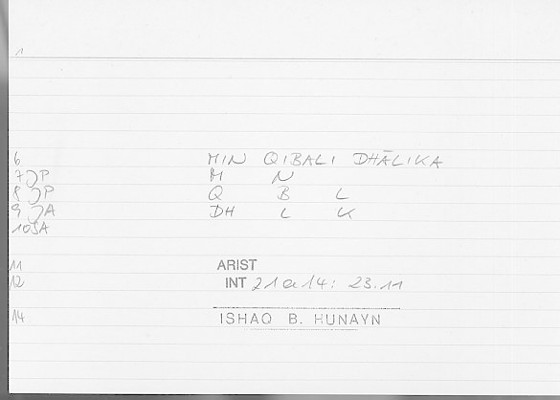 1
6 MIN QIBALI DHĀLIKA
7 JP M N
8 JP Q B L
9 JA DH L K
10 JA
11 ARIST
12 INT 21a14: 23.11
14 ISHAQ B. HUNAYN